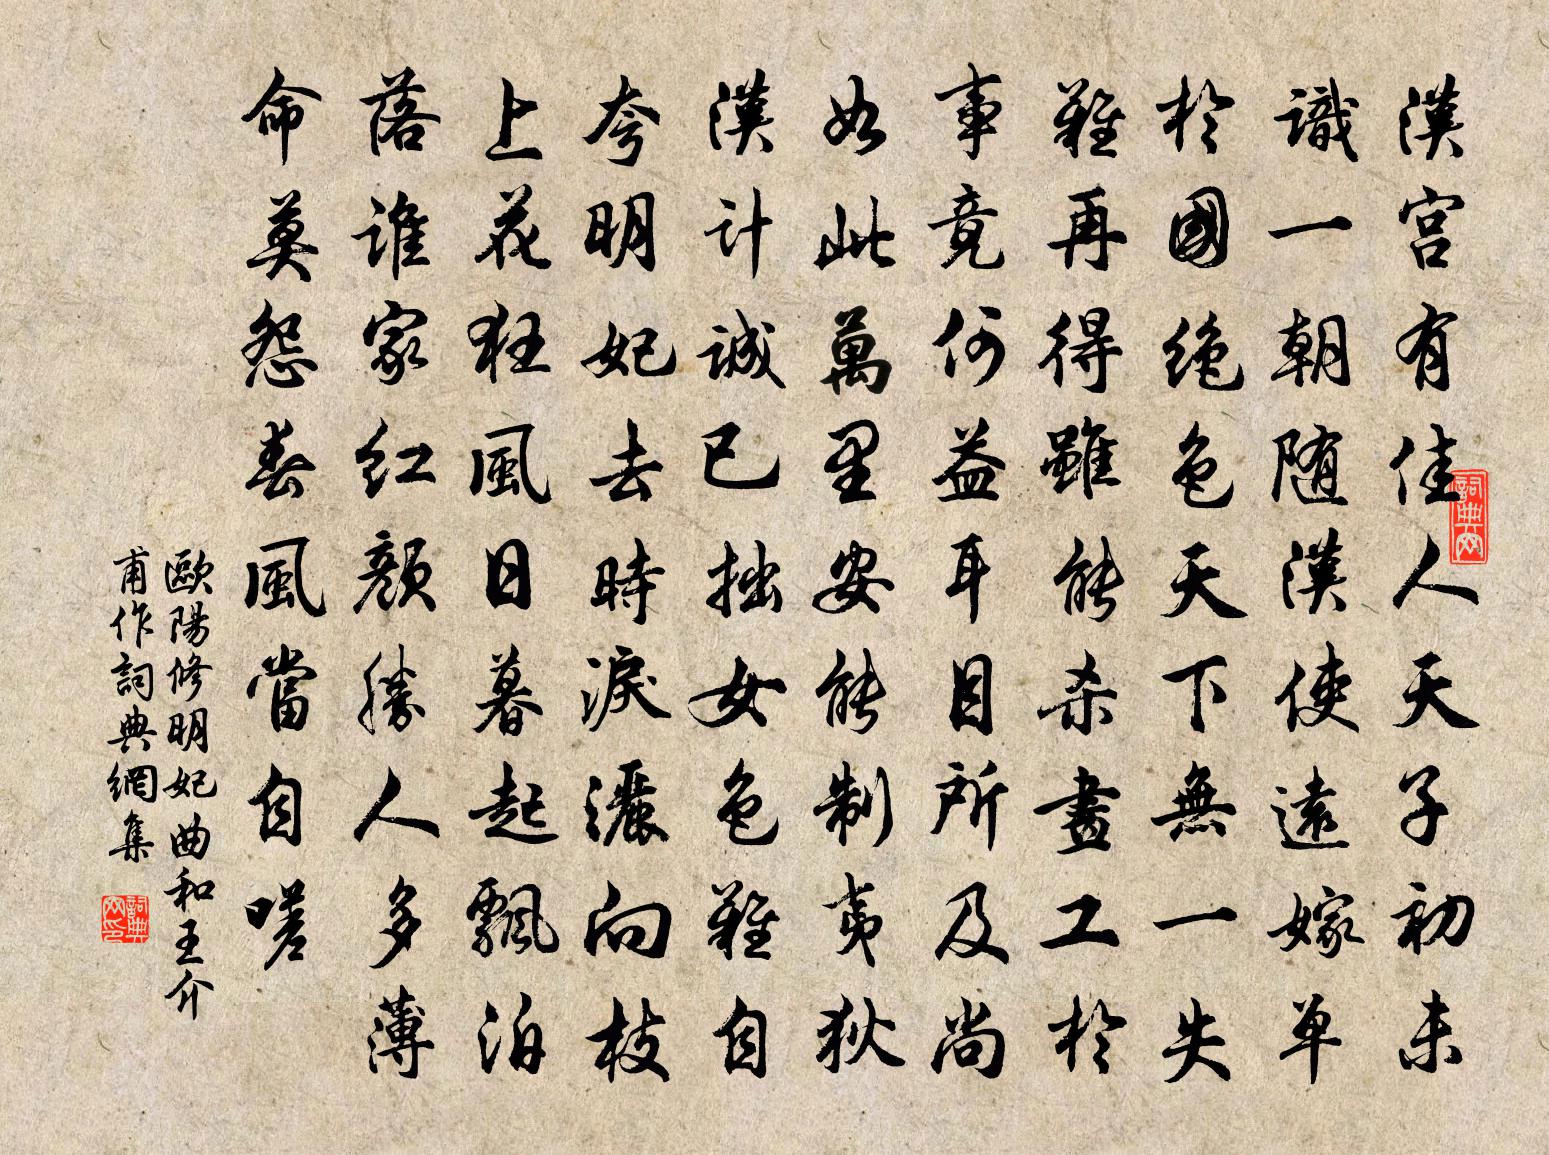 漢宮有佳人天子初未
識一朝随漢使遠嫁单
於國絶色天下無一失
難再得雖能杀畫工於
事竟何益耳目所及尚
如此萬里安能制夷狄
漢计誠已拙女色難自
夸明妃去時淚灑向枝
上花狂風日暮起飄泊
落誰家紅顔勝人多薄
命莫怨春風當自嗟
歐陽修明妃曲和王介
甫作詞典網集
詞典网
詞典网印